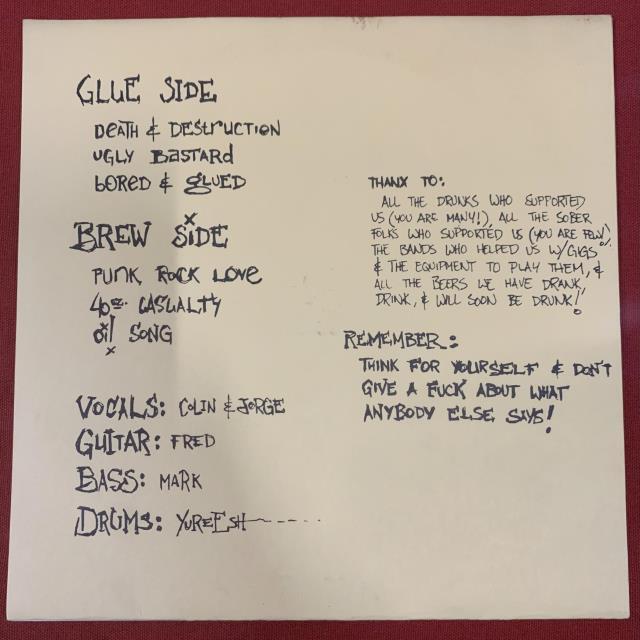 GLUE SIDE
DEATH & DESTRUCTION
UGLY BASTARD
BORED & GLUED
BREW SIDE
PUNK ROCK LOVE
40oz. CASUALTY
oi! SONG
VOCALS: COLIN & JORGE
GUITAR: FRED
BASS: MARK
DRUMS: YUREESH
THANX TO:
ALL THE DRUNKS WHO SUPPORTED
US (YOU ARE MANY!), ALL THE SOBER
FOLKS WHO SUPPORTED US (YOU ARE FEW)
THE BANDS WHO HELPED US W/GIGS
& THE EQUIPMENT TO PLAY THEM, &
ALL THE BEERS WE HAVE DRANK,
DRINK, & WILL SOON BE DRUNK!
REMEMBER:
THINK FOR YOURSELF & DON'T
GIVE A FUCK ABOUT WHAT
ANYBODY ELSE SAYS!